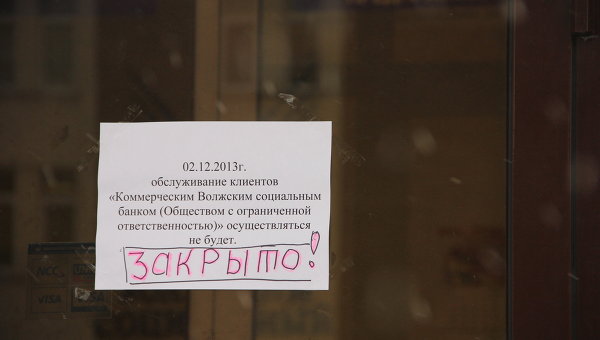 02.12.2013г.
обслуживание клиентов
«Коммерческим Волжским социальным
банком (Обществом с ограниченной
ответственностью)» осуществляться
не будет.
ЗАКРЫТО!
NCC
VISA
VISA